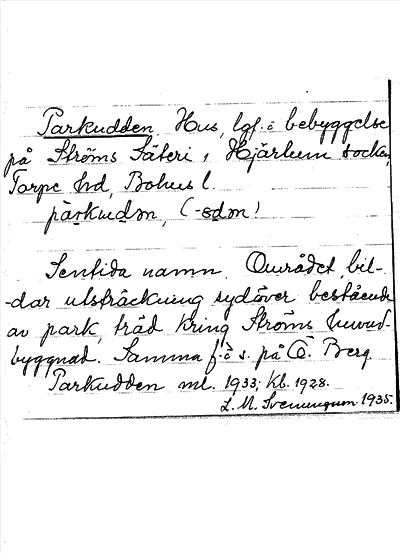 Parkudden. Hus, lgf. o bebyggelse
på Ströms Säteri, Hjärtum socken,
Torpe hd, Bohus l.
parkudən, (-ɵdən!
Sentida namn. Området bil-
-dar utsträckning sydöver bestående
av park, träd kring Ströms huvud-
byggnad. Samma f. o s. på Ö. Berg.
Parkudden ml. 1933; Kb. 1928.
L. M. Svenungson. 1935.